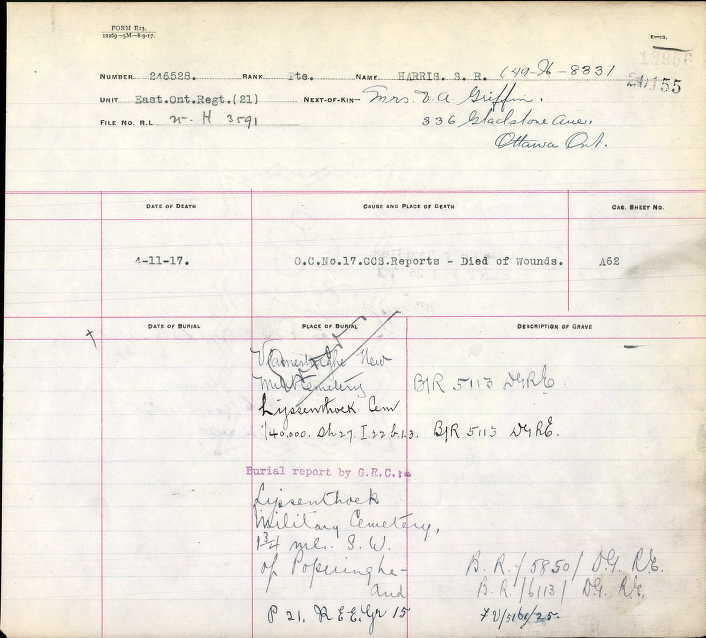 FORM R123.
12269—5M—8-9-17.
NUMBER 246528. RANK Pte. NAME HARRIS. S. R. (49-H-833)
20155
UNIT East.Ont.Regt.(21) NEXT-OF-KIN— Mrs V. A. Griffin.
FILE No. R.L. 25-H 3591 336 Gladstone Ave.
Ottawa Ont.
DATE OF DEATH CAUSE AND PLACE OF DEATH CAS. SHEET NO.
4-11-17. O.C.No.17.CCS.Reports - Died of Wounds. A62
DATE OF BURIAL PLACE OF BURIAL DESCRIPTION OF GRAVE
Vlamertinghe New
Mil Cemetery B/R 5113 DGRE.
Lijssenthoek Cem
1/40,000. Sh 27. I.22.b.1.3. B/R 5113 DGRE.
Burial report by G.R.C:-
Lijssenthoek
Military Cemetery,
1¾ mls. S.W.
of Poperinghe— B.R./5850/ D.G. R/E.
and B.R./6113/ D.G. R/E.
P 21. R.E.E. Gr 15